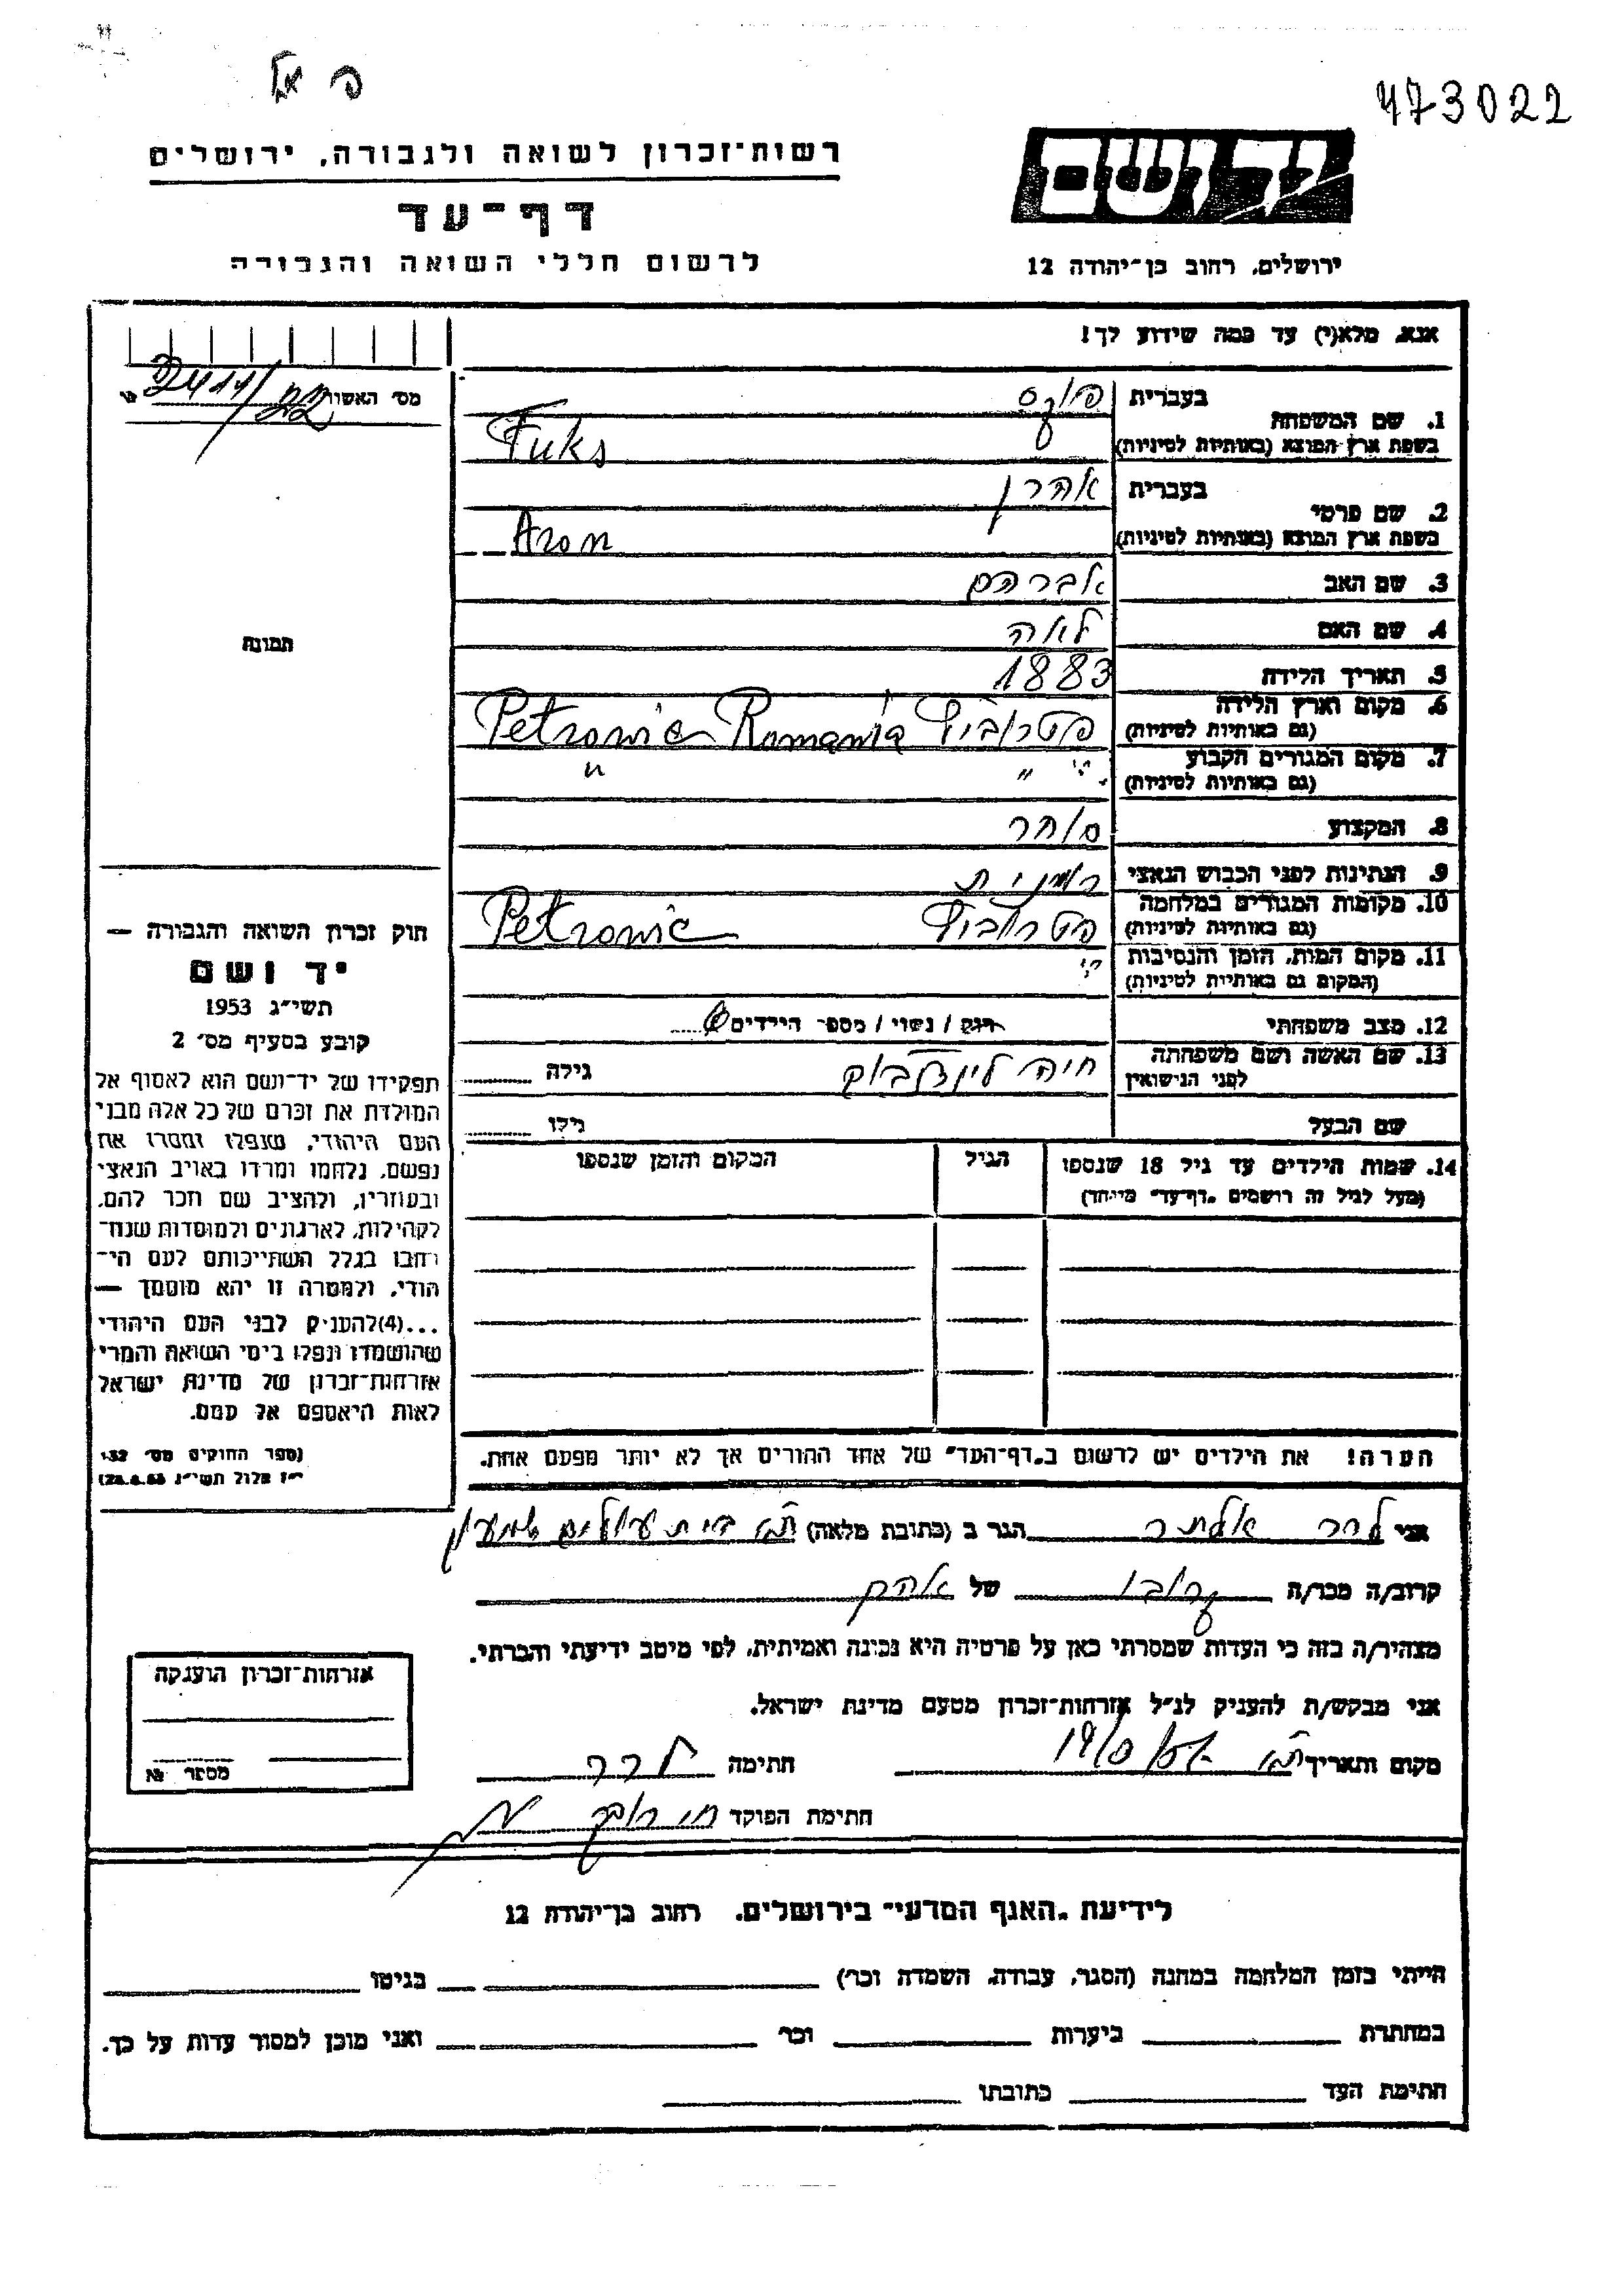 פ אל
473022
רשות־זכרון לשואה ולגבורה, ירושלים
יד ושם
דף־עד
לרשום חללי השואה והגבורה
ירושלים, רחוב בן־יהודה 12
אנא, מלא(י) עד כמה שידוע לך!
מס' האשור
2411/22
1. שם המשפחה
בעברית פוקס
בשפת ארץ המוצא (באותיות לטיניות) Fuks
2. שם פרטי
בעברית אהרן
בשפת ארץ המוצא (באותיות לטיניות) Aron
3. שם האב אברהם
4. שם האם לאה
5. תאריך הלידה 1883
6. מקום וארץ הלידה פטרוביץ Petrovic Romania
(גם באותיות לטיניות)
7. מקום המגורים הקבוע " " "
(גם באותיות לטיניות)
8. המקצוע סוחר
9. הנתינות לפני הכבוש הנאצי רומנית
10. מקומות המגורים במלחמה פטרוביץ Petrovic
(גם באותיות לטיניות)
11. מקום המות, הזמן והנסיבות "
(המקום גם באותיות לטיניות)
12. מצב משפחתי רוק / נשוי / מספר הילדים
13. שם האשה ושם משפחתה חיה גילה
לפני הנישואין
שם הבעל גילו
14. שמות הילדים עד גיל 18 שנספו הגיל המקום והזמן שנספו
(מעל לגיל זה רושמים "דף־עד" מיוחד)
הערה! את הילדים יש לרשום ב"דף־העד" של אחד ההורים אך לא יותר מפעם אחת.
תמונה
חוק זכרון השואה והגבורה —
יד ושם
תשי"ג 1953
קובע בסעיף מס' 2
תפקידו של יד־ושם הוא לאסוף אל
המולדת את זכרם של כל אלה מבני
העם היהודי, שנפלו ומסרו את
נפשם, נלחמו ומרדו באויב הנאצי
ובעוזריו, ולהציב שם וזכר להם,
לקהילות, לארגונים ולמוסדות שנח־
רבו בגלל השתייכותם לעם הי־
הודי, ולמטרה זו יהא מוסמך —
...(4)להעניק לבני העם היהודי
שהושמדו ונפלו בימי השואה והמרי
אזרחות־זכרון של מדינת ישראל
לאות היאספם אל עמם.
(ספר החוקים מס' 132
י"ז אלול תשי"ג 28.8.53)
אני הגר ב (כתובת מלאה) בית עולים שמעון
קרוב/ה מכר/ה קרובו של אהרן
מצהיר/ה בזה כי העדות שמסרתי כאן על פרטיה היא נכונה ואמיתית, לפי מיטב ידיעתי והכרתי.
אני מבקש/ת להעניק לנ"ל אזרחות־זכרון מטעם מדינת ישראל.
מקום ותאריך חתימה
חתימת הפוקד
אזרחות־זכרון הוענקה
מספר №
לידיעת "האגף המדעי" בירושלים, רחוב בן־יהודה 12
הייתי בזמן המלחמה במחנה (הסגר, עבודה, השמדה וכו') בגיטו
במחתרת ביערות וכו' ואני מוכן למסור עדות על כך.
חתימת העד כתובתו